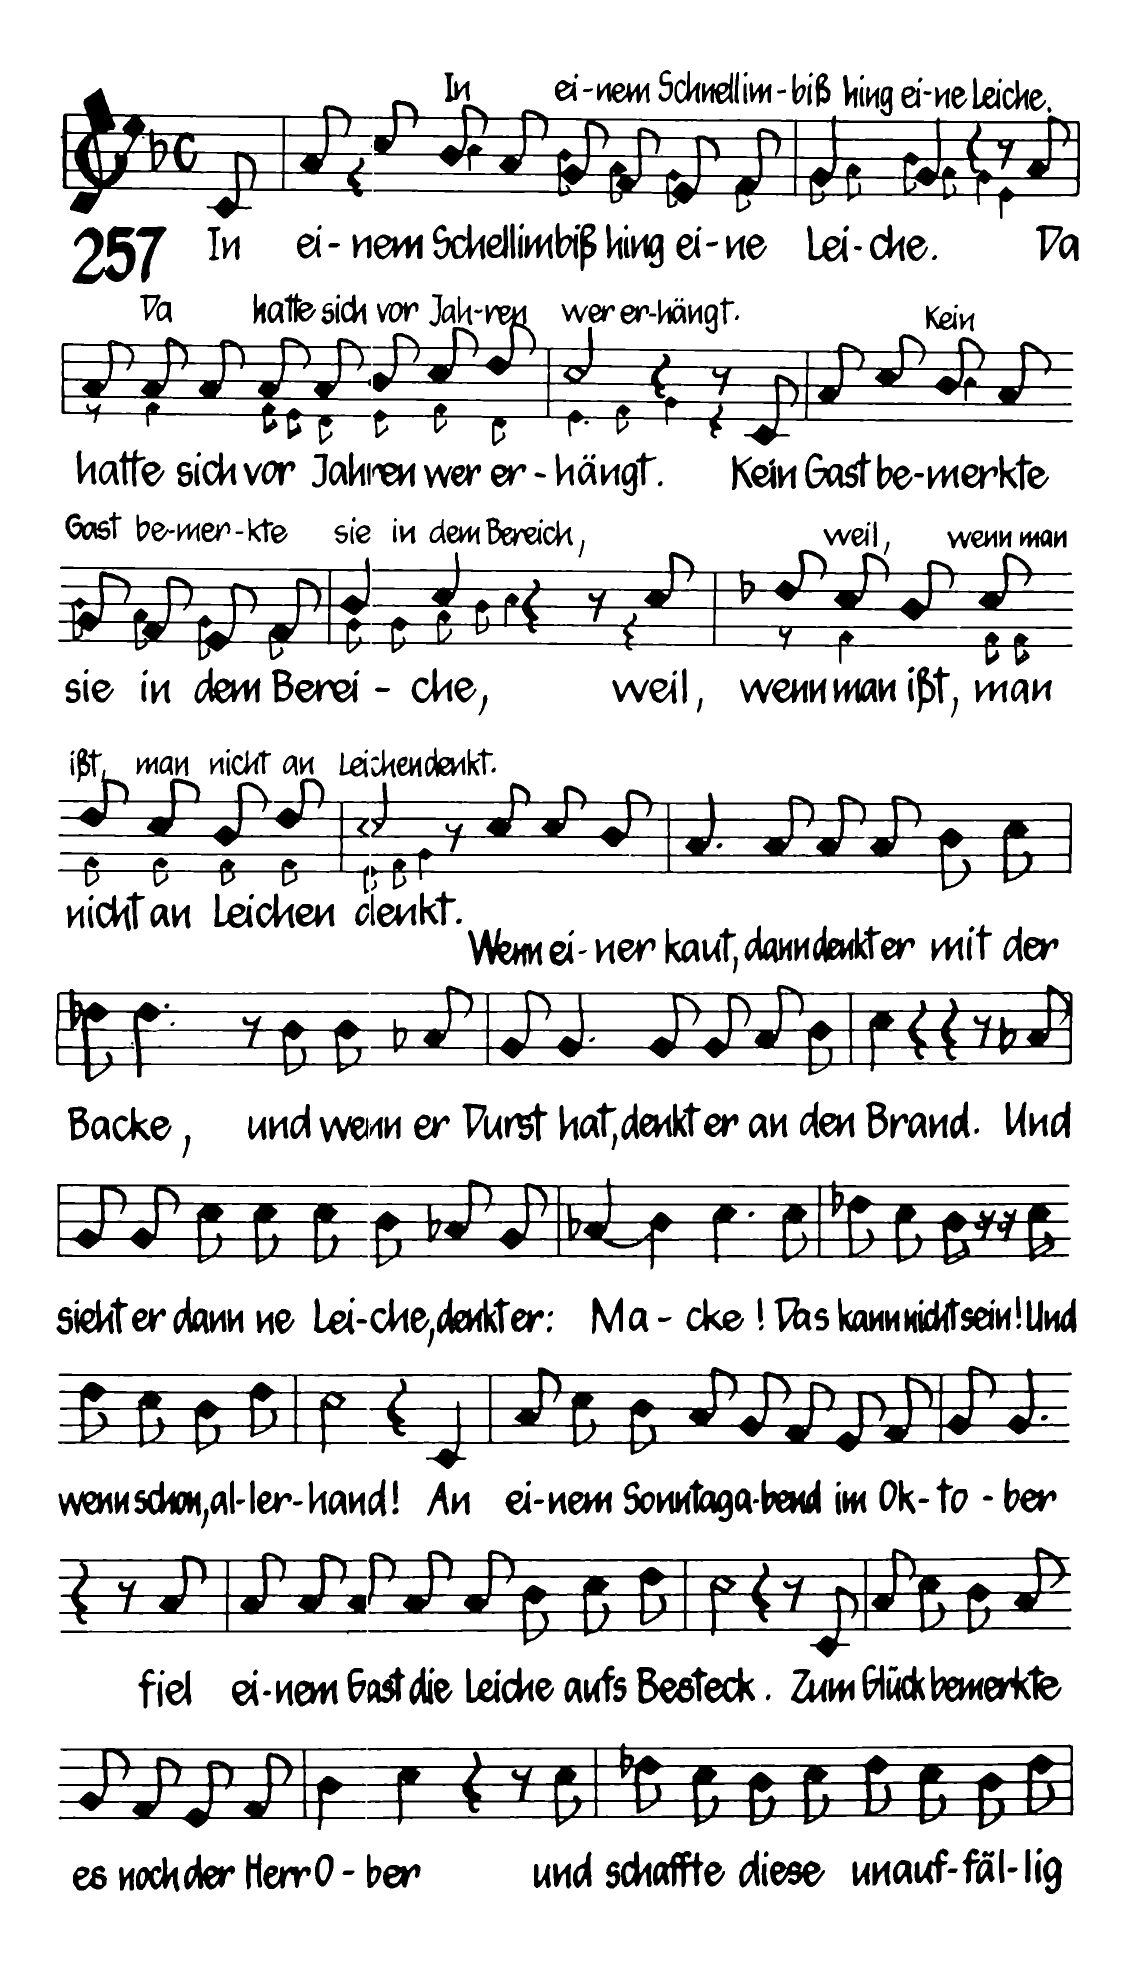 In ei-nem Schnellim-biß hing ei-ne Leiche.
257 In ei-nem Schellimbiß hing ei-ne Lei-che. Da
Da hatte sich vor Jah-ren wer er-hängt. Kein
hatte sich vor Jahren wer er-hängt. Kein Gast be-merkte
Gast be-mer-kte sie in dem Bereich, weil, wenn man
sie in dem Berei-che, weil, wenn man ißt, man
ißt, man nicht an Leichen denkt.
nicht an Leichen denkt.
Wenn ei-ner kaut, dann denkt er mit der
Backe, und wenn er Durst hat, denkt er an den Brand. Und
sieht er dann ne Lei-che, denkt er: Ma-cke! Das kann nicht sein! Und
wenn schon, al-ler-hand! An ei-nem Sonntaga-bend im Ok-to-ber
fiel ei-nem Gast die Leiche aufs Besteck. Zum Glück bemerkte
es noch der Herr O-ber und schaffte diese unauf-fäl-lig